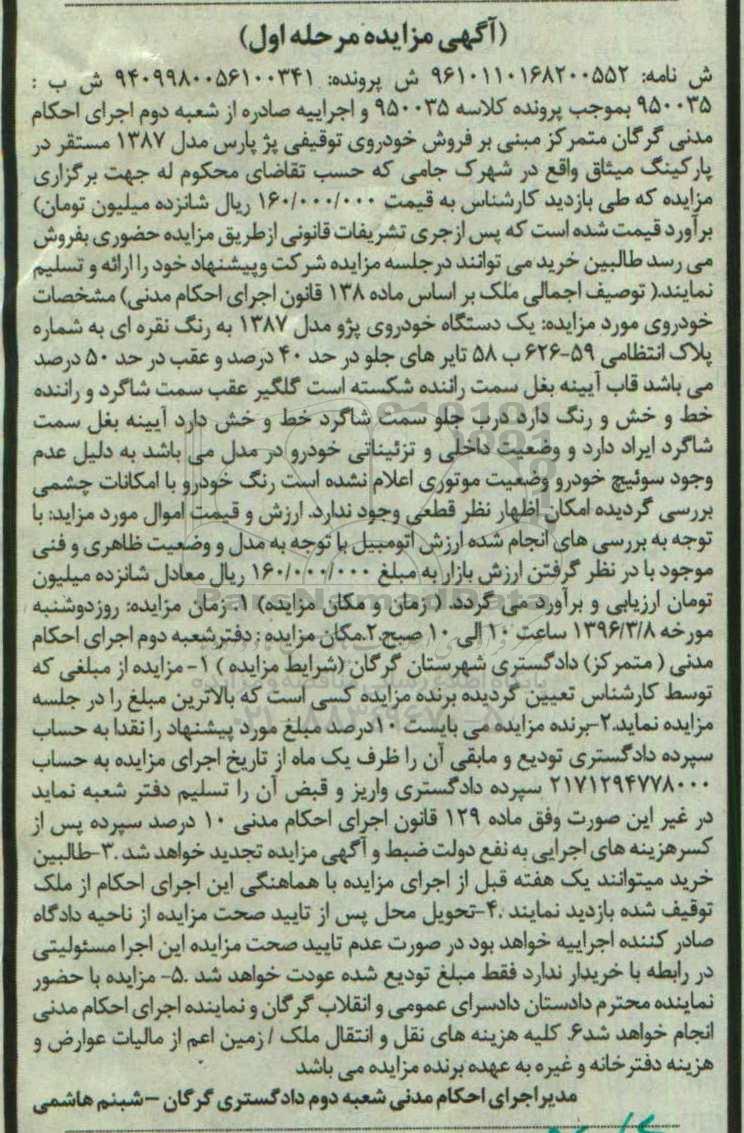 (آگهی مزایده مرحله اول)
ش نامه: ۹۶۱۰۱۱۰۱۶۸۲۰۰۵۵۲ ش پرونده: ۹۴۰۹۹۸۰۰۵۶۱۰۰۳۴۱ ش ب :
۹۵۰۰۳۵ بموجب پرونده کلاسه ۹۵۰۰۳۵ و اجراییه صادره از شعبه دوم اجرای احکام
مدنی گرگان متمرکز مبنی بر فروش خودروی توقیفی پژ پارس مدل ۱۳۸۷ مستقر در
پارکینگ میثاق واقع در شهرک جامی که حسب تقاضای محکوم له جهت برگزاری
مزایده که طی بازدید کارشناس به قیمت ۱۶۰/۰۰۰/۰۰۰ ریال شانزده میلیون تومان)
برآورد قیمت شده است که پس ازجری تشریفات قانونی ازطریق مزایده حضوری بفروش
می رسد طالبین خرید می توانند درجلسه مزایده شرکت وپیشنهاد خود را ارائه و تسلیم
نمایند.( توصیف اجمالی ملک بر اساس ماده ۱۳۸ قانون اجرای احکام مدنی) مشخصات
خودروی مورد مزایده: یک دستگاه خودروی پژو مدل ۱۳۸۷ به رنگ نقره ای به شماره
پلاک انتظامی ۵۹-۶۲۶ ب ۵۸ تایر های جلو در حد ۴۰ درصد و عقب در حد ۵۰ درصد
می باشد قاب آیینه بغل سمت راننده شکسته است گلگیر عقب سمت شاگرد و راننده
خط و خش و رنگ دارد درب جلو سمت شاگرد خط و خش دارد آیینه بغل سمت
شاگرد ایراد دارد و وضعیت داخلی و تزئیناتی خودرو در مدل می باشد به دلیل عدم
وجود سوئیچ خودرو وضعیت موتوری اعلام نشده است رنگ خودرو با امکانات چشمی
بررسی گردیده امکان اظهار نظر قطعی وجود ندارد. ارزش و قیمت اموال مورد مزاید: با
توجه به بررسی های انجام شده ارزش اتومبیل با توجه به مدل و وضعیت ظاهری و فنی
موجود با در نظر گرفتن ارزش بازار به مبلغ ۱۶۰/۰۰۰/۰۰۰ ریال معادل شانزده میلیون
تومان ارزیابی و برآورد می گردد. ( زمان و مکان مزایده) ۱. زمان مزایده: روزدوشنبه
مورخه ۱۳۹۶/۳/۸ ساعت ۱۰ الی ۱۰ صبح.۲.مکان مزایده : دفترشعبه دوم اجرای احکام
مدنی ( متمرکز) دادگستری شهرستان گرگان (شرایط مزایده ) ۱- مزایده از مبلغی که
توسط کارشناس تعیین گردیده برنده مزایده کسی است که بالاترین مبلغ را در جلسه
مزایده نماید.۲-برنده مزایده می بایست ۱۰درصد مبلغ مورد پیشنهاد را نقدا به حساب
سپرده دادگستری تودیع و مابقی آن را ظرف یک ماه از تاریخ اجرای مزایده به حساب
۲۱۷۱۲۹۴۷۷۸۰۰۰ سپرده دادگستری واریز و قبض آن را تسلیم دفتر شعبه نماید
در غیر این صورت وفق ماده ۱۲۹ قانون اجرای احکام مدنی ۱۰ درصد سپرده پس از
کسرهزینه های اجرایی به نفع دولت ضبط و آگهی مزایده تجدید خواهد شد .۳-طالبین
خرید میتوانند یک هفته قبل از اجرای مزایده با هماهنگی این اجرای احکام از ملک
توقیف شده بازدید نمایند .۴-تحویل محل پس از تایید صحت مزایده از ناحیه دادگاه
صادر کننده اجراییه خواهد بود در صورت عدم تایید صحت مزایده این اجرا مسئولیتی
در رابطه با خریدار ندارد فقط مبلغ تودیع شده عودت خواهد شد .۵- مزایده با حضور
نماینده محترم دادستان دادسرای عمومی و انقلاب گرگان و نماینده اجرای احکام مدنی
انجام خواهد شد.۶. کلیه هزینه های نقل و انتقال ملک / زمین اعم از مالیات عوارض و
هزینه دفترخانه و غیره به عهده برنده مزایده می باشد
مدیر اجرای احکام مدنی شعبه دوم دادگستری گرگان -شبنم هاشمی